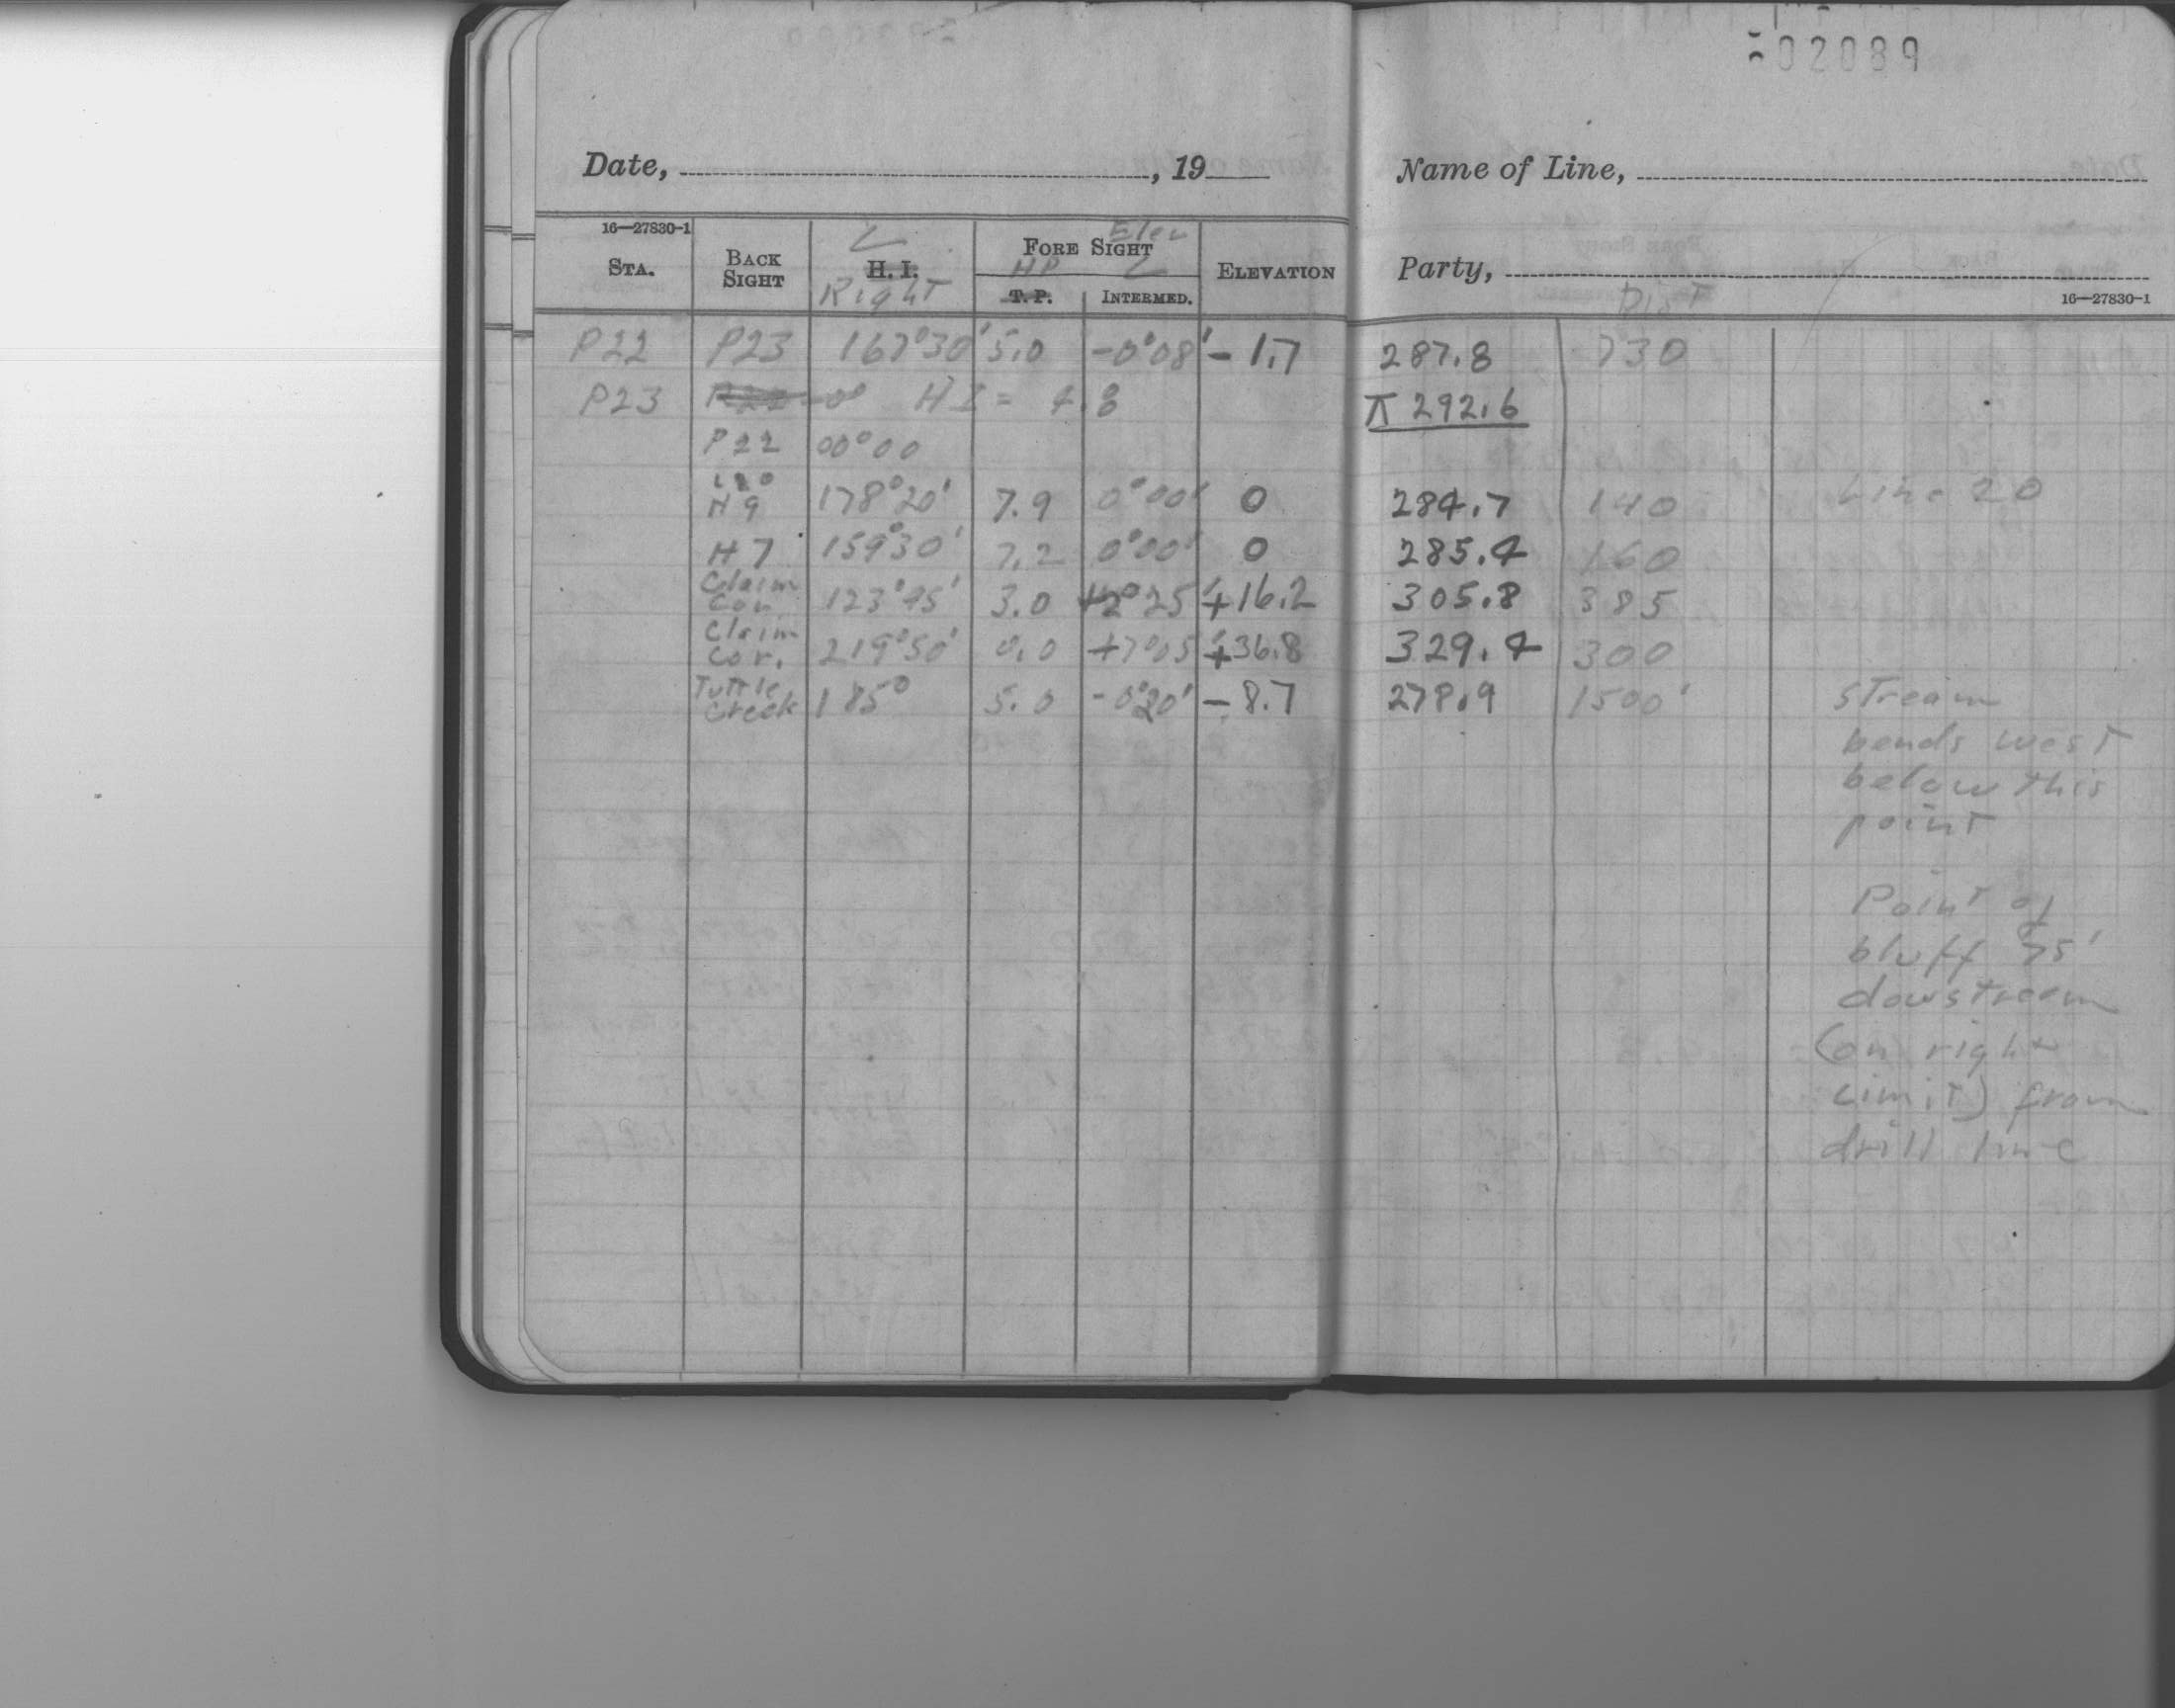 02089
Date, , 19
Name of Line,
16—27830-1
STA.
BACK SIGHT
∠ H. I. Right
FORE SIGHT
Elev ∠
HP T. P.
INTERMED.
ELEVATION
Party,
Dist
16—27830-1
P22 P23 167°30' 5.0 -0°08' -1.7 287.8 730
P23 HI = 4.8 π 292.6
P22 00°00
L20
H9 178°20' 7.9 0°00' 0 284.7 140 Line 20
H7 159°30' 7.2 0°00' 0 285.4 160
Claim
Cor. 123°45' 3.0 +2°25' +16.2 305.8 385
Claim
Cor. 219°50' 0.0 +7°05' +36.8 329.4 300
Tuttle
Creek 185° 5.0 -0°20' -8.7 278.9 1500' Stream
bends west
below this
point
Point of
bluff 75'
dowstream
(on right
limit) from
drill line